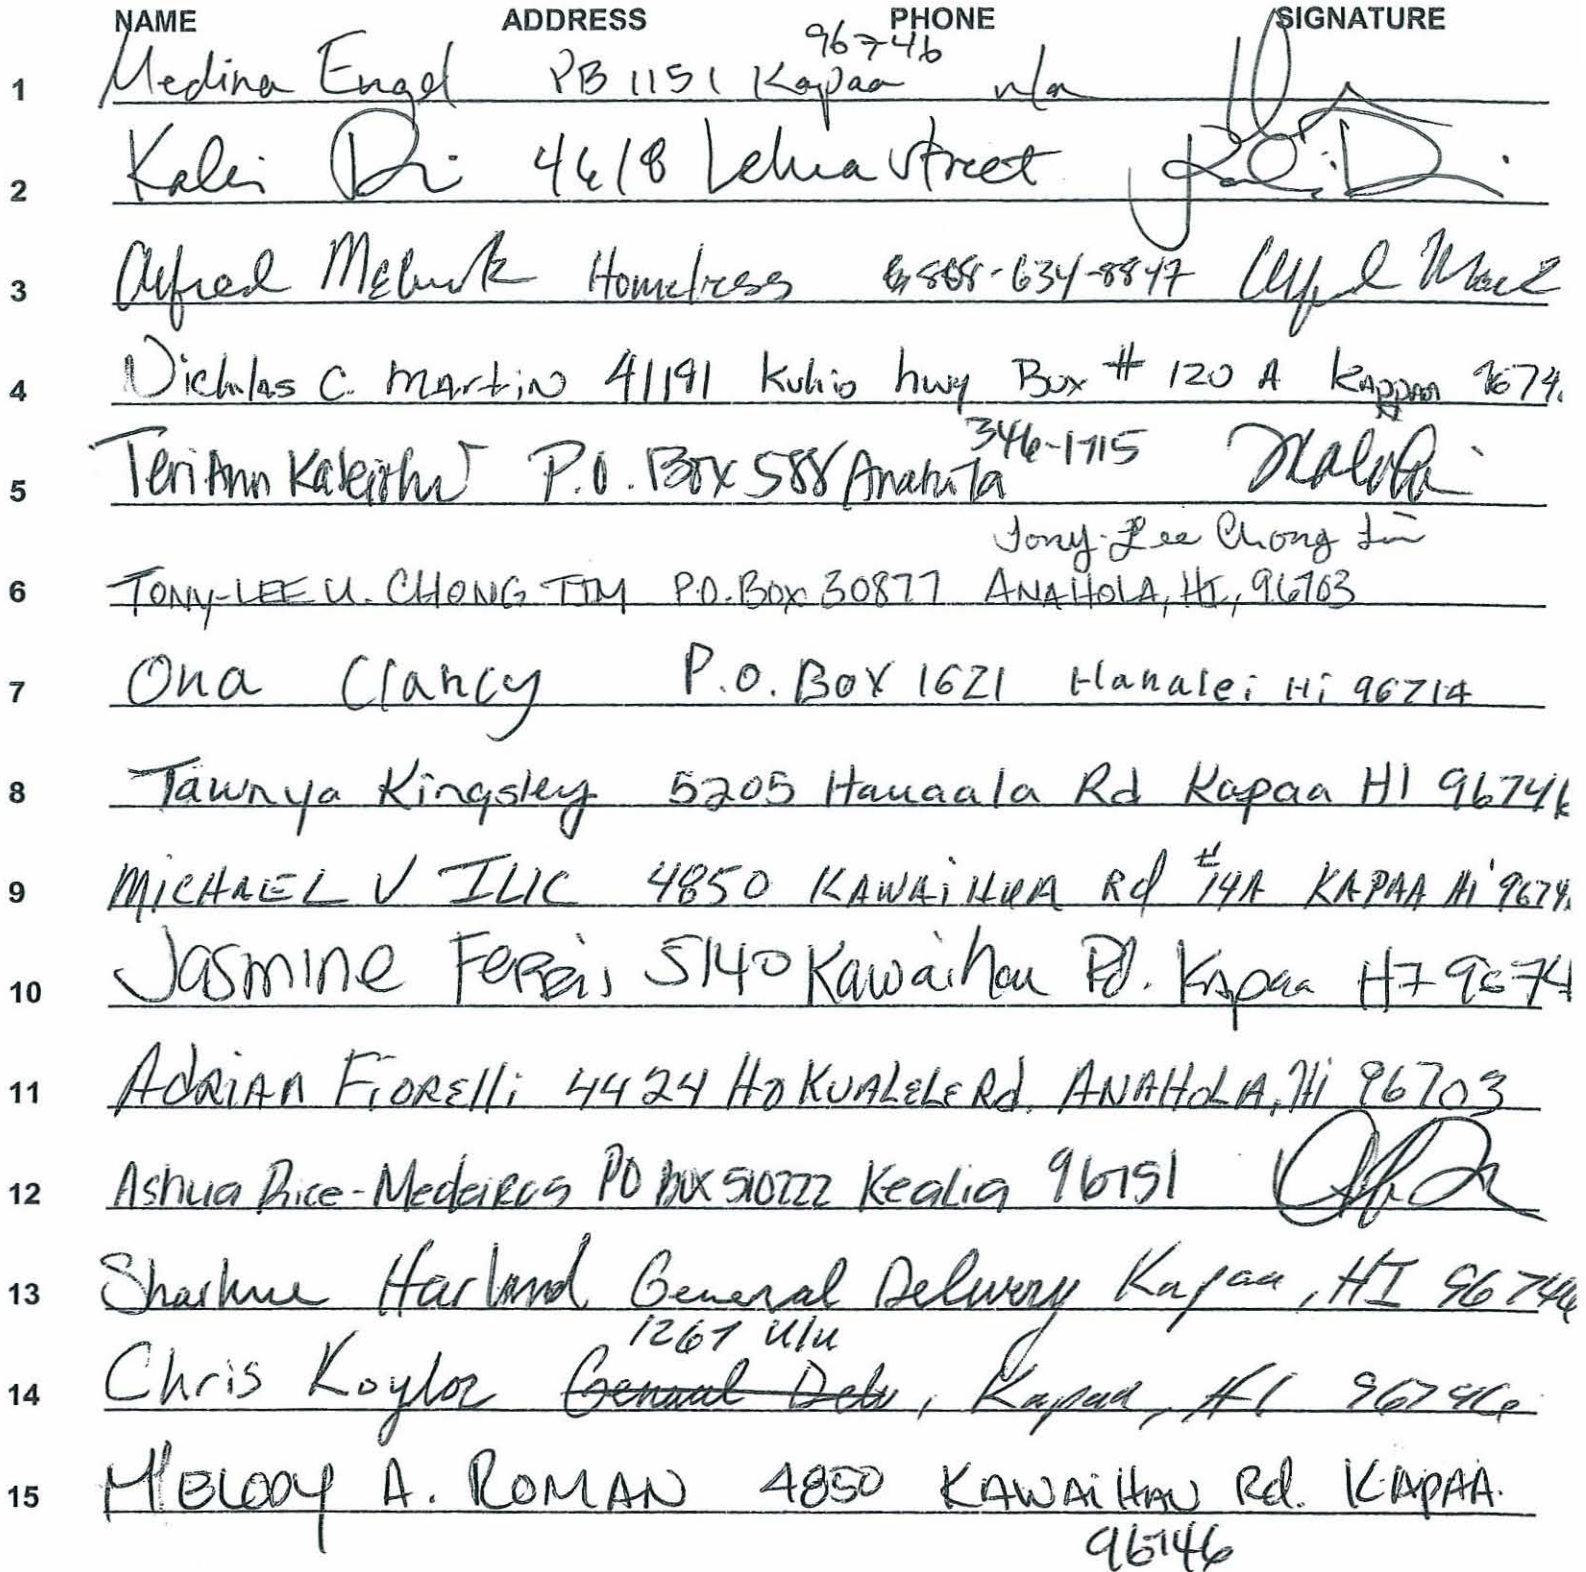 NAME ADDRESS PHONE SIGNATURE
96746
1 Medina Engel PB 1151 Kapaa n/a
2 Kalei 4618 Lehua Street
3 Alfred Homeless 808-634-8847
4 Nicholas C. Martin 41191 Kuhio hwy Box # 120 A Kappaa 9674
346-1715
5 TeriAnn P.O. Box 588 Anahola
Tony-Lee Chong Tim
6 TONY-LEE U. CHONG TIM P.O. Box 30877 ANAHOLA, HI, 96703
7 Ona Clancy P.O. Box 1621 Hanalei Hi 96714
8 Tawnya Kingsley 5205 Hauaala Rd Kapaa HI 96746
9 MICHAEL V ILIC 4850 KAWAIHUA Rd #14A KAPAA Hi 9674
10 Jasmine Ferreis 5140 Kawaihau Rd. Kapaa HI 9674
11 Adrian Fiorelli 4424 HOKUALELE Rd. ANAHOLA, Hi 96703
12 Ashua Rice-Medeiros PO BOX 510222 Kealia 96751
13 Harland General Delivery Kapaa, HI 96746
1267 Ulu
14 Chris Koylor General Delv, Kapaa, HI 96746
15 MELODY A. ROMAN 4850 KAWAIHAU Rd. KAPAA.
96746